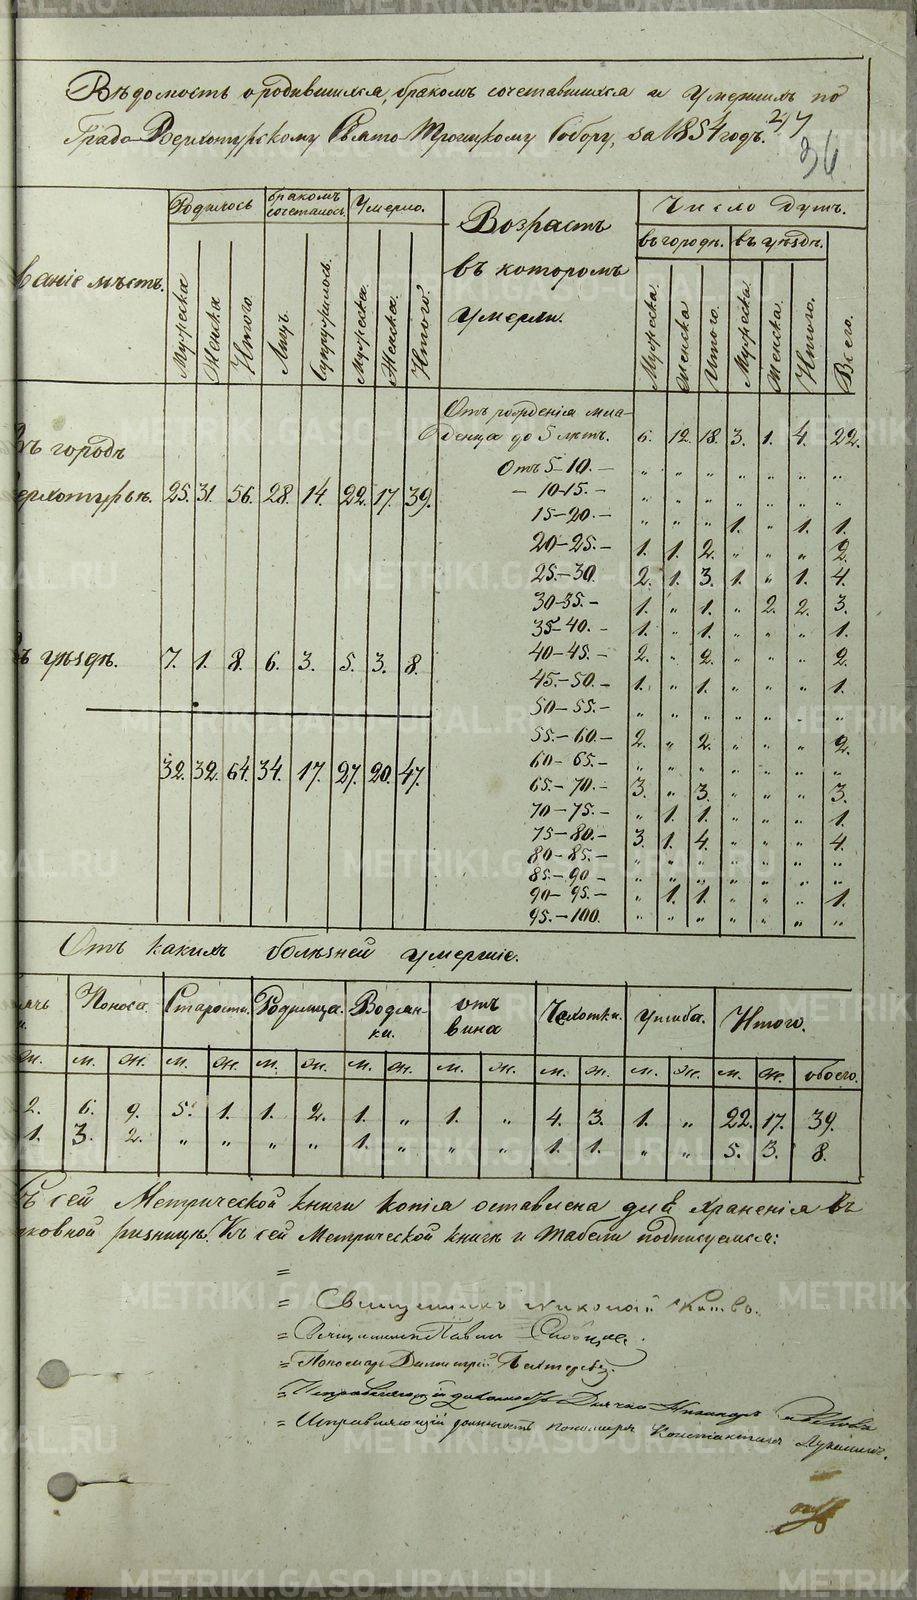 Вѣдомость о родившихся, бракомъ сочетавшихся и умершихъ по
Градо Верхотурскому Свято-Троицкому Собору, за 1854 годъ.
34
Родилось
бракомъ сочеталось
Умерло.
Возрастъ въ которомъ умерли.
Число душъ.
въ городѣ. въ уѣздѣ.
ваніе мѣстъ.
Мужеска Женска Итого. Лицъ. Супружествъ. Мужеска. Женска. Итого.
Мужеска. Женска. Итого. Мужеска. Женска. Итого. Всего.
Отъ рожденія мла-
денца до 5 лѣтъ. 6. 12. 18. 3. 1. 4. 22.
ъ городѣ
ерхотурьѣ. 25. 31. 56. 28. 14. 22. 17. 39.
Отъ 5-10.- „ „ „ „ „ „ „
- 10-15.- „ „ „ „ „ „ „
15-20.- „ „ „ 1. „ 1. 1.
20-25.- 1. 1. 2. „ „ „ 2.
25.-30. 2. 1. 3. 1. „ 1. 4.
30-35.- 1. „ 1. „ 2. 2. 3.
35-40.- 1. „ 1. „ „ „ 1.
40-45.- 2. „ 2. „ „ „ 2.
ъ уѣздѣ. 7. 1. 8. 6. 3. 5. 3. 8.
45.-50.- 1. „ 1. „ „ „ 1.
50-55.- „ „ „ „ „ „ „
55.-60.- 2. „ 2. „ „ „ 2.
60-65.- „ „ „ „ „ „ „
32. 32. 64. 34. 17. 27. 20. 47.
65.-70.- 3. „ 3. „ „ „ 3.
70-75.- „ 1. 1. „ „ „ 1.
75-80.- 3. 1. 4. „ „ „ 4.
80-85.- „ „ „ „ „ „ „
85.-90- „ „ „ „ „ „ „
90-95.- „ 1. 1. „ „ „ 1.
95.-100. „ „ „ „ „ „ „
Отъ какихъ болѣзней умершіе.
Поноса. Старости. Родимца. Водян-ки. отъ вина Чахотки. Ушиба. Итого.
ж. м. ж. м. ж. м. ж. м. ж. м. ж. м. ж. м. ж. м. ж. обоего.
2. 6. 9. 5. 1. 1. 2. 1. „ 1. „ 4. 3. 1. „ 22. 17. 39.
1. 3. 2. „ „ „ „ 1. „ „ „ 1. 1. „ „ 5. 3. 8.
ъ сей Метрической книги копія оставлена для храненія въ
ковной ризницѣ. Къ сей Метрической книгѣ и табели подписуемся:
= Священникъ Николай
= Священникъ Павелъ
= Пономарь Димитрій
= Исправляющій должность Дьячка
= Исправляющій должность пономаря Константинъ
METRIKI.GASO-URAL.RU